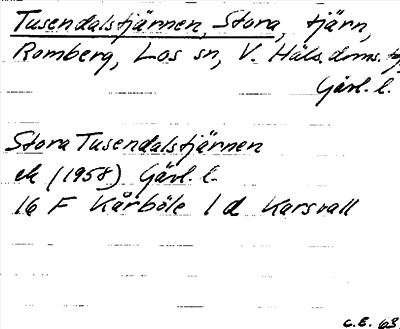 Tusendalstjärnen, Stora, tjärn,
Romberg, Los sn, V. Häls. doms. tg,
Gävl. l.
Stora Tusendalstjärnen
ek (1958) Gävl. l.
16 F Kårböle 1 d Karsvall
C.E. 63.